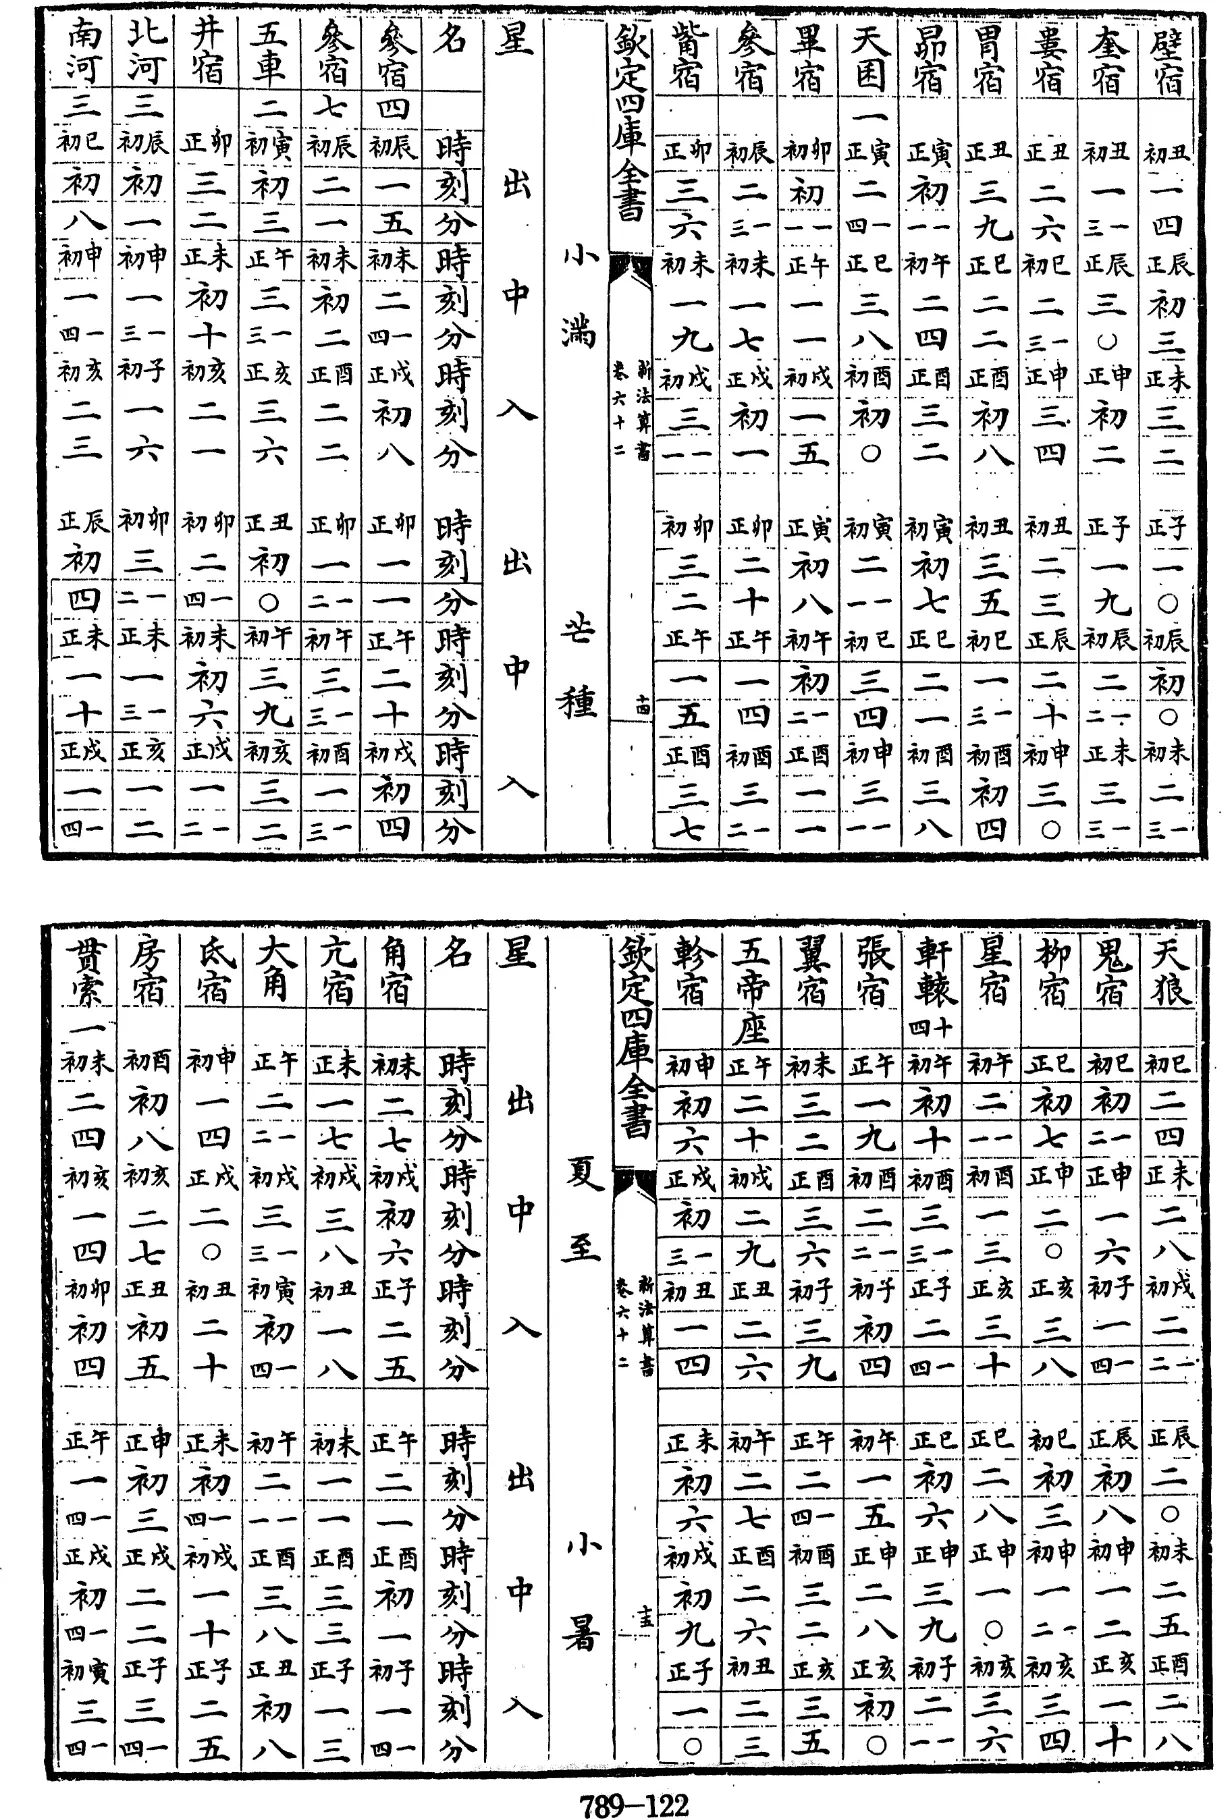 壁宿 丑初 一 四 辰正 初 三 未正 三 二 子正 一 ○ 辰初 初 ○ 未初 二 一三
奎宿 丑初 一 一三 辰正 三 ○ 申正 初 二 子正 一 九 辰初 二 一二 未正 三 一三
婁宿 丑正 二 六 巳初 二 一三 申正 三 四 丑初 二 三 辰正 二 十 申初 三 ○
胃宿 丑正 三 九 巳正 二 二 酉正 初 八 丑初 三 五 巳初 一 一三 酉初 初 四
昴宿 寅正 初 一一 午初 二 四 酉正 三 二 寅初 初 七 巳正 二 一 酉初 三 八
天囷一 寅正 二 一四 巳正 三 八 酉初 初 ○ 寅初 二 一一 巳初 三 四 申初 三 一一
畢宿 卯初 初 一一 午正 一 一 戌初 一 五 寅正 初 八 午初 初 一二 酉正 一 一
參宿 辰初 二 一三 未初 一 七 戌正 初 一 卯正 二 十 午正 一 四 酉初 三 一二
觜宿 卯正 三 六 未初 一 九 戌初 三 一一 卯初 三 二 午正 一 五 酉正 三 七
欽定四庫全書
新法算書
卷六十二
十四
小滿 芒種
星 出 中 入 出 中 入
名 時 刻 分 時 刻 分 時 刻 分 時 刻 分 時 刻 分 時 刻 分
參宿四 辰初 一 五 未初 二 一四 戌正 初 八 卯正 一 一 午正 二 十 戌初 初 四
參宿七 辰初 二 一 未初 初 二 酉正 二 二 卯正 一 一二 午初 三 一三 酉初 一 一三
五車二 寅初 初 三 午正 三 一三 亥正 三 六 丑正 初 ○ 午初 三 九 亥初 三 二
井宿 卯正 三 二 未正 初 十 亥初 二 一 卯初 二 一四 未初 初 六 戌正 一 一二
北河三 辰初 初 一 申初 一 一三 子初 一 六 卯初 三 一二 未正 一 一三 亥正 一 二
南河三 巳初 初 八 申初 一 一四 亥初 二 三 辰正 初 四 未正 一 十 戌正 一 一四
天狼 巳初 二 四 未正 二 八 戌初 二 一二 辰正 二 ○ 未初 二 五 酉正 二 八
鬼宿 巳初 初 一二 申正 一 六 子初 一 一四 辰正 初 八 申初 一 二 亥正 一 十
柳宿 巳正 初 七 申正 二 ○ 亥正 三 八 巳初 初 三 申初 一 一二 亥初 三 四
星宿 午初 二 一一 酉初 一 三 亥正 三 十 巳正 二 八 申正 一 ○ 亥初 三 六
軒轅十四 午初 初 十 酉初 三 一三 子正 二 一四 巳正 初 六 申正 三 九 子初 二 一一
張宿 午正 一 九 酉初 二 一二 子初 初 四 午初 一 五 申正 二 八 亥正 初 ○
翼宿 未初 三 二 酉正 三 六 子初 三 九 午正 二 一四 酉初 三 二 亥正 三 五
五帝座 午正 二 十 戌初 二 九 丑正 二 六 午初 二 七 酉正 二 六 丑初 二 三
軫宿 申初 初 六 戌正 初 一三 丑初 一 四 未正 初 六 戌初 初 九 子正 一 ○
欽定四庫全書
新法算書
卷六十二
十五
夏至 小暑
星 出 中 入 出 中 入
名 時 刻 分 時 刻 分 時 刻 分 時 刻 分 時 刻 分 時 刻 分
角宿 未初 二 七 戌初 初 六 子正 二 五 午正 二 一 酉正 初 一 子初 一 一四
亢宿 未正 一 七 戌初 三 八 丑初 一 八 未初 一 一 酉正 三 三 子正 一 三
大角 午正 二 一二 戌初 三 一三 寅初 初 一四 午初 二 一一 酉正 三 八 丑正 初 八
氐宿 申初 一 四 戌正 二 ○ 丑初 二 十 未正 初 一四 戌初 一 十 子正 二 五
房宿 酉初 初 八 亥初 二 七 丑正 初 五 申正 初 三 戌正 二 二 子正 三 一四
貫索一 未初 二 四 亥初 一 四 卯初 初 四 午正 一 一四 戌正 初 一四 寅初 三 一四
789—122